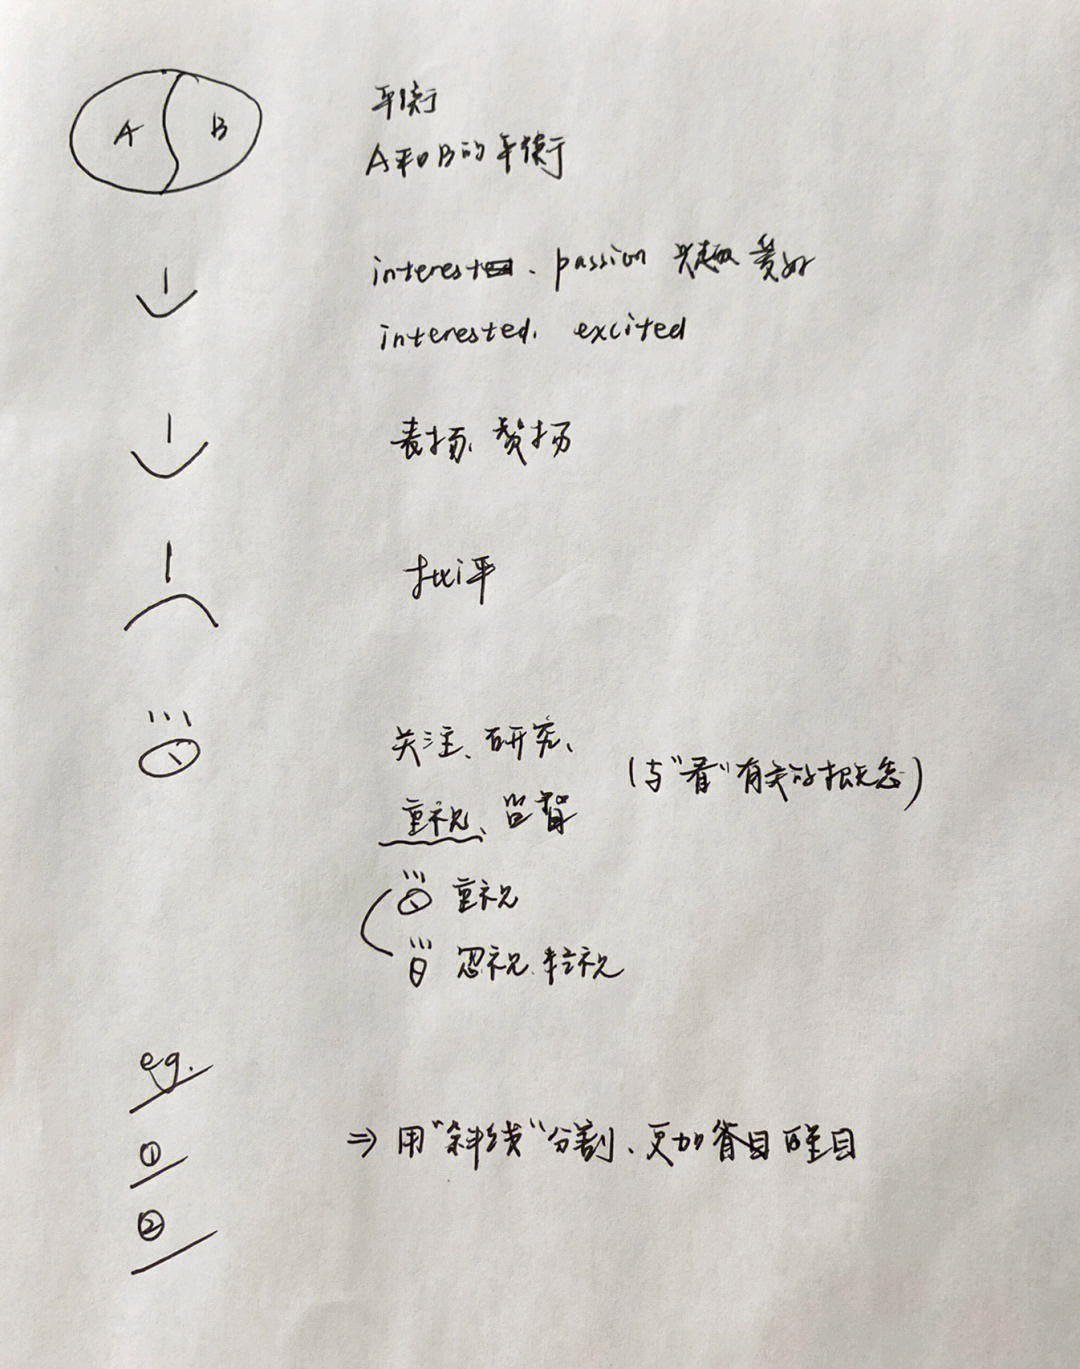 A B
平衡
A和B的平衡
interest、passion 兴趣 爱好
interested, excited
表扬、赞扬
批评
关注、研究、
重视、监督
(与"看"有关的概念)
重视
忽视、轻视
eg.
①
②
⇒ 用"斜线"分割、更加省目醒目